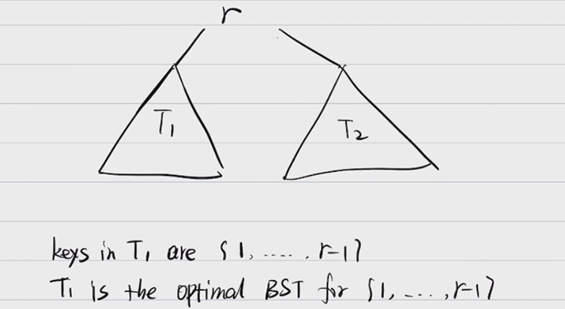 r
T1 T2
keys in T1 are {1, ....., r-1}
T1 is the optimal BST for {1, ..., r-1}